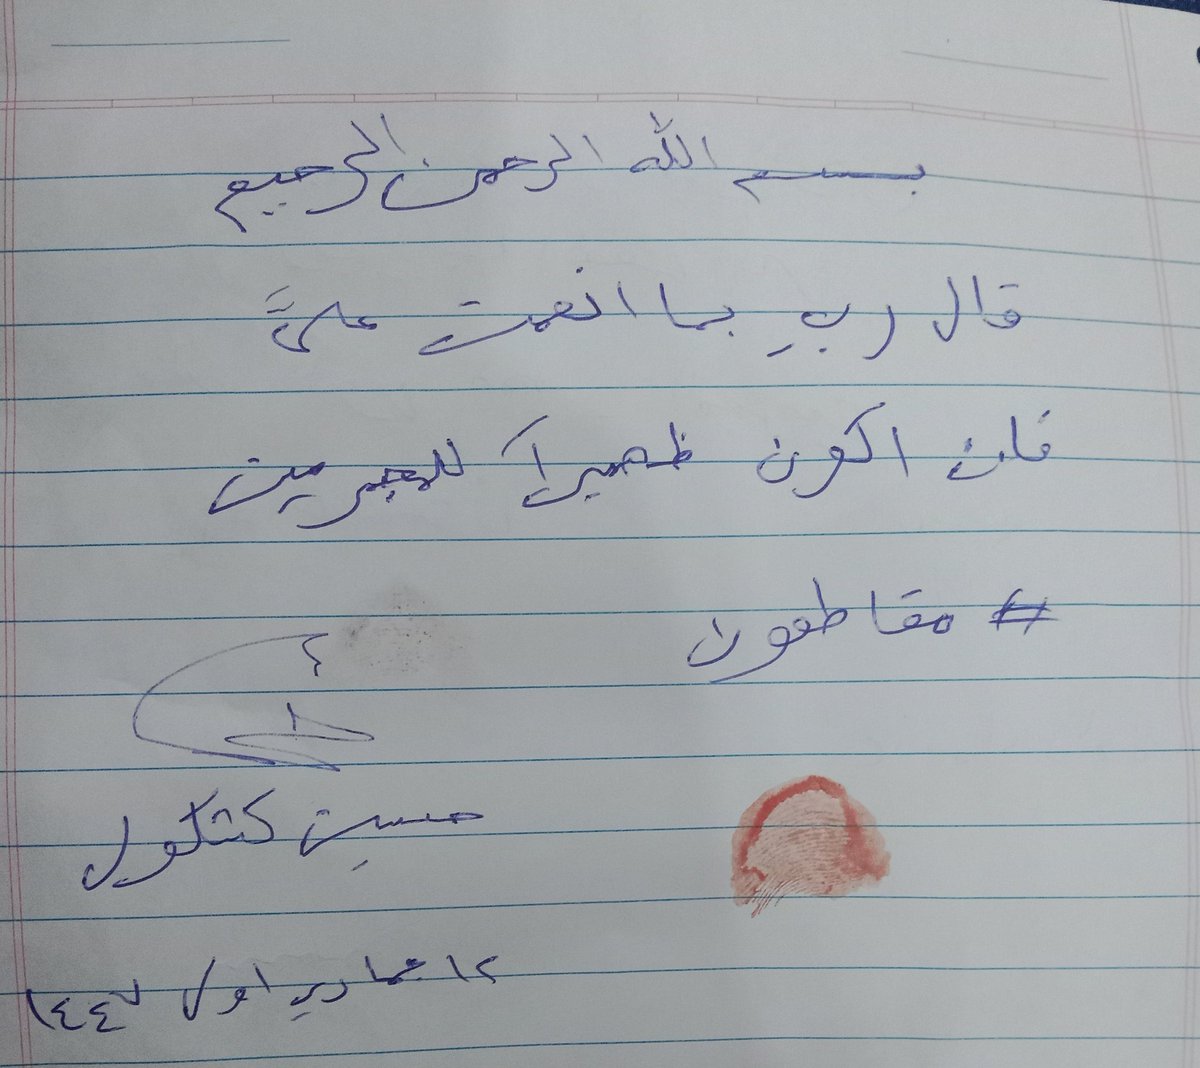 بسم الله الرحمن الرحيم
قال ربِ بما انعمت عليَّ
فلن اكون ظهيراً للمجرمين
# مقاطعون
حسين كشكول
١٢ جمادي اول ١٤٤٧